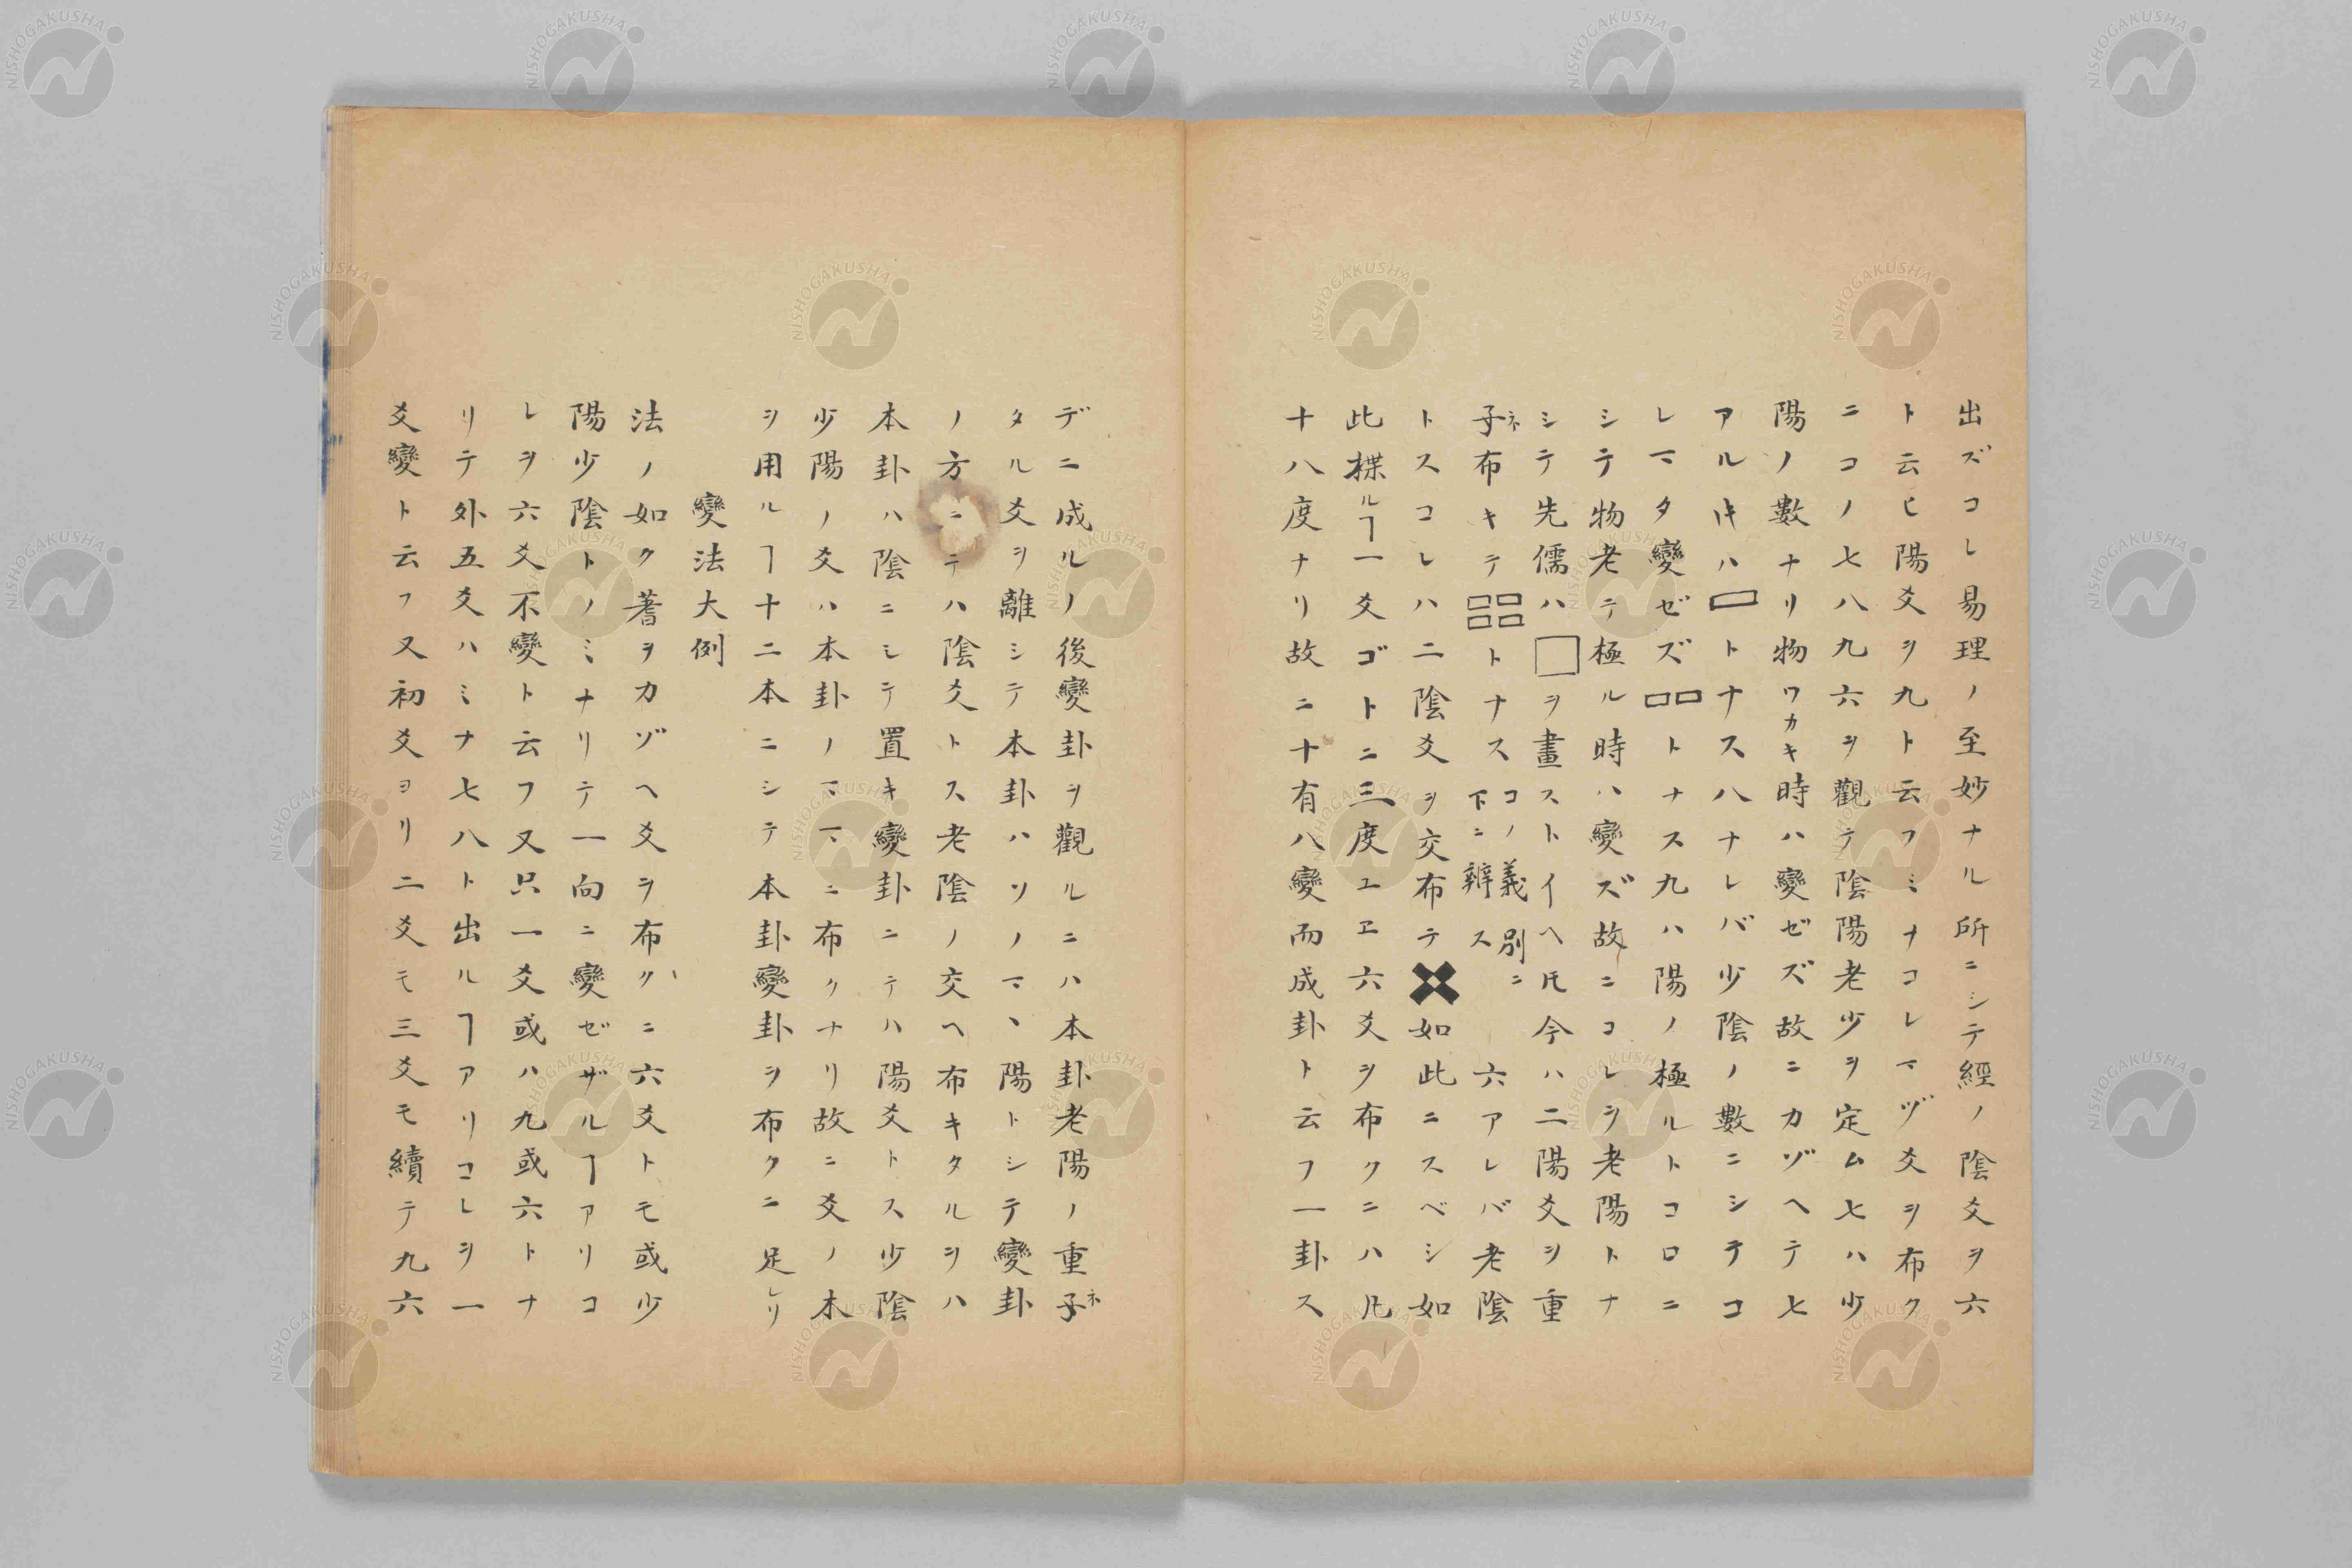 出ズコレ易理ノ至妙ナル所ニシテ經ノ陰爻ヲ六
ト云ヒ陽爻ヲ九ト云フミナコレマヅ爻ヲ布ク
ニコノ七八九六ヲ觀テ陰陽老少ヲ定ム七ハ少
陽ノ數ナリ物ワカキ時ハ變ゼズ故ニカゾヘテ七
アル𪜈ハトナス八ナレバ少陰ノ數ニシテコ
レマタ變ゼズトナス九ハ陽ノ極ルトコロニ
シテ物老テ極ル時ハ變ズ故ニコレヲ老陽トナ
シテ先儒ハ□ヲ畫ストイヘ𪜈今ハ二陽爻ヲ重
子ネ布キテトナス
コノ義別ニ
下ニ辨ス
六アレバ老陰
トスコレハ二陰爻ヲ交布テ如此ニスベシ如
此揲ルヿ一爻ゴトニ三度ユヱ六爻ヲ布クニハ凡
十八度ナリ故ニ十有八變而成卦ト云フ一卦ス
デニ成ルノ後變卦ヲ觀ルニハ本卦老陽ノ重子ネ
タル爻ヲ離シテ本卦ハソノマヽ陽トシテ變卦
ノ方ニテハ陰爻トス老陰ノ交ヘ布キタルヲハ
本卦ハ陰ニシテ置キ變卦ニテハ陽爻トス少陰
少陽ノ爻ハ本卦ノママニ布クナリ故ニ爻ノ木
ヲ用ルヿ十二本ニシテ本卦變卦ヲ布クニ足レリ
變法大例
法ノ如ク蓍ヲカゾヘ爻ヲ布クニ六爻トモ或少
陽少陰トノミナリテ一向ニ變ゼザルヿアリコ
レヲ六爻不變ト云フ又只一爻或ハ九或六トナ
リテ外五爻ハミナ七八ト出ルヿアリコレヲ一
爻變ト云フ又初爻ヨリ二爻モ三爻モ續テ九六
NISHOGAKUSHA